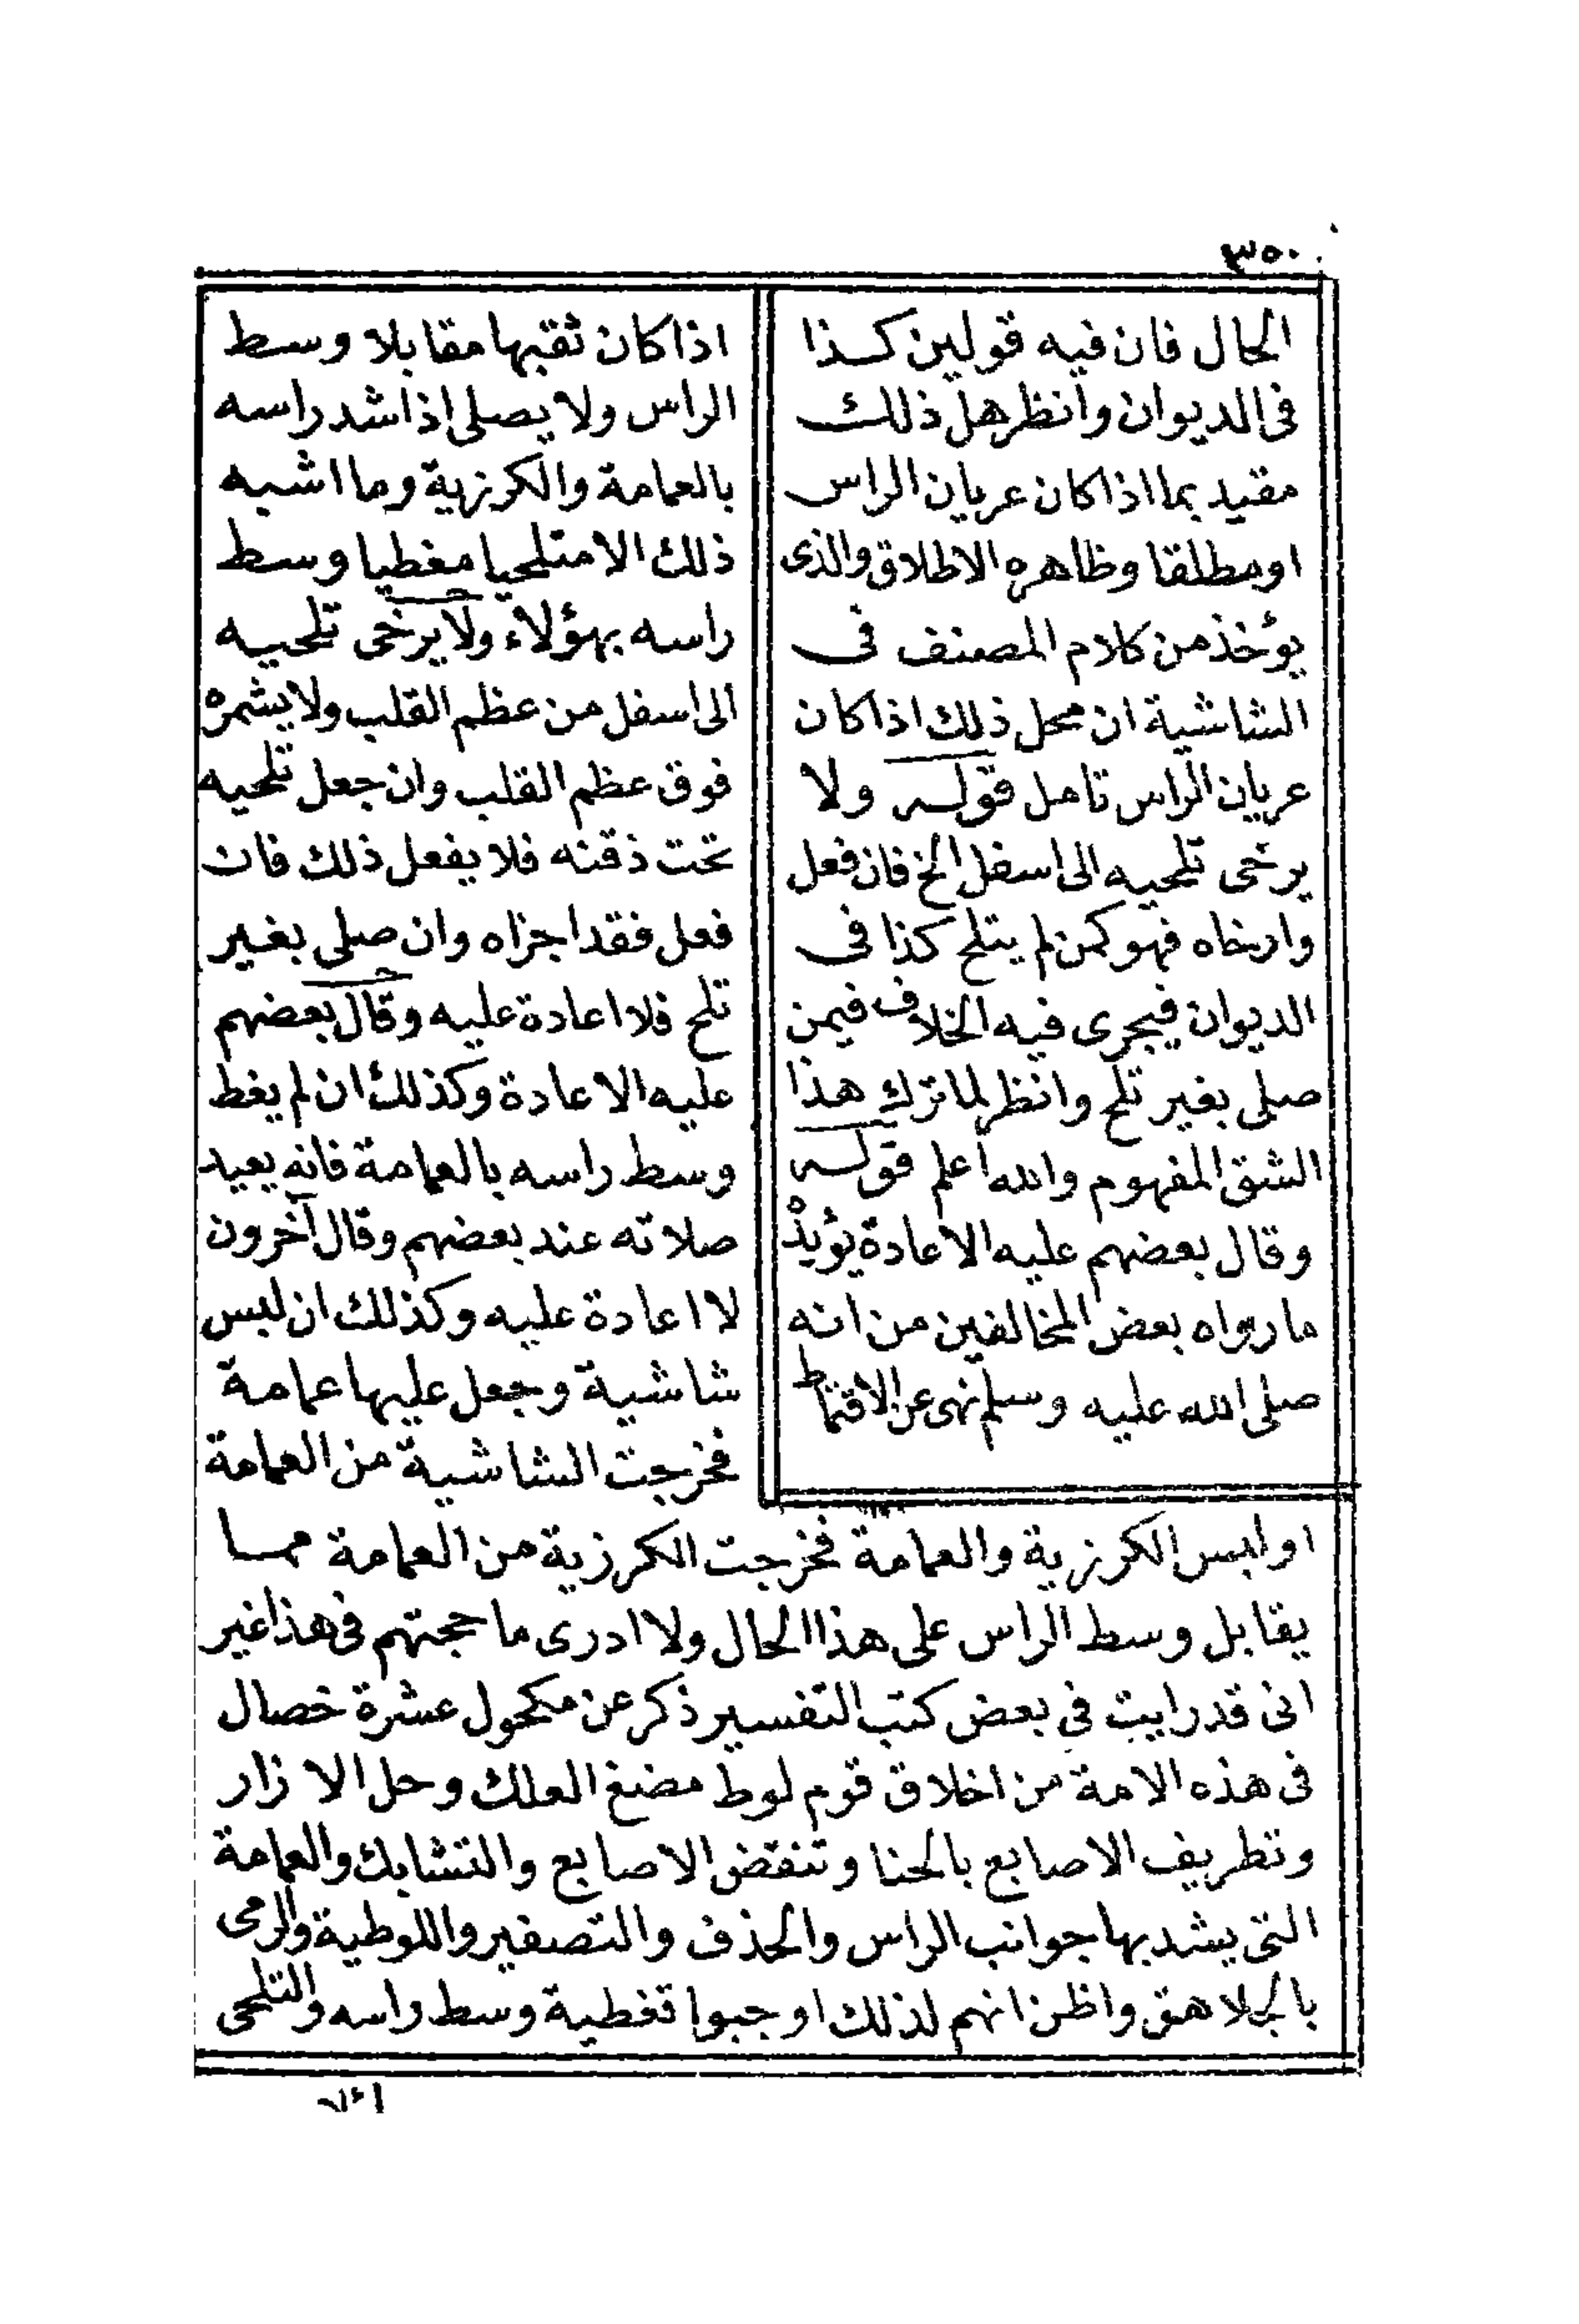 ٣٥٠
الحال فان فيه قولين كذا
فى الديوان وانظر هل ذلك
مقيد بما اذا كان عريان الراس
او مطلقا وظاهره الاطلاق والذى
يؤخذ من كلام المصنف فى
الشاشية ان محل ذلك اذا كان
عريان الراس تامل قوله ولا
يرخى تلحيه الى اسفل الخ فان فعل
وارخاه فهو كمن لم يتلح كذا فى
الديوان فيجرى فيه الخلاف فيمن
صلى بغير تلح وانظر لما ترك هذا
الشق المفهوم والله اعلم قوله
وقال بعضهم عليه الاعادة يؤيده
ما رواه بعض المخالفين من انه
صلى الله عليه وسلم نهى عن الاقتعاط
اذا كان ثقبها مقابلا وسط
الراس ولا يصلى اذا شد راسه
بالعمامة والكرزية وما اشبه
ذلك الا متلحيا مغطيا وسط
راسه بهؤلاء ولا يرخى تلحيه
الى اسفل من عظم القلب ولا يشمره
فوق عظم القلب وان جعل تلحيه
تحت ذقنه فلا يفعل ذلك فان
فعل فقد اجزاه وان صلى بغير
تلح فلا اعادة عليه وقال بعضهم
عليه الاعادة وكذلك ان لم يغط
وسط راسه بالعمامة فانه يعيد
صلاته عند بعضهم وقال آخرون
لا اعادة عليه وكذلك ان لبس
شاشية وجعل عليها عمامة
فخرجت الشاشية من العمامة
او لبس الكرزية والعمامة فخرجت الكرزية من العمامة مما
يقابل وسط الراس على هذا الحال ولا ادرى ما حجتهم فى هذا غير
انى قد رايت فى بعض كتب التفسير ذكر عن مكحول عشرة خصال
فى هذه الامة من اخلاق قوم لوط مضغ العلك وحل الازار
وتطريف الاصابع بالحنا وتنقض الاصابع والتشابك والعمامة
التى يشد بها جوانب الراس والحذف والتصفير واللوطية والرمى
بالجلاهق واظن انهم لذلك اوجبوا تغطية وسط راسه والتلحى